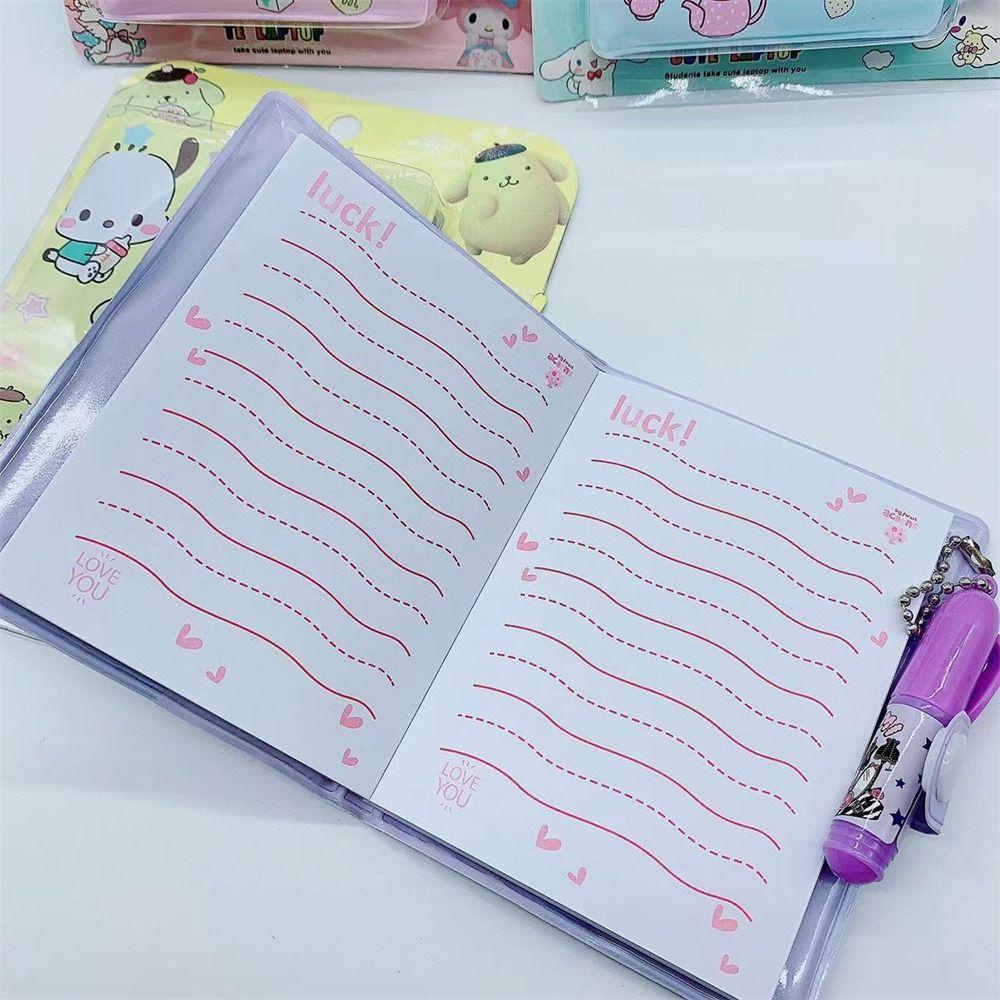 TE LAPTOP
take cute laptop with you
CUTE LAPTOP
Students take cute laptop with you
luck!
LOVE
YOU
luck!
LOVE
YOU